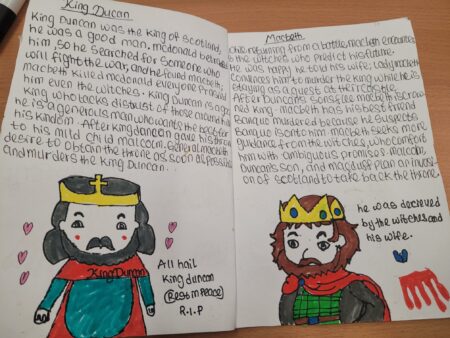 King Ducan
King Duncan was the king of scotland,
he was a good man. mcdonald behind
him, so he searched for someone who
will fight the war, and he found macbeth,
macbeth killed mcdonald everyone praising
him even the witches. King Duncan is a good
king who lacks distrust of those around him.
he is a generous man who wants the best for
his kingdom. After king duncan gave his throne
to his mild child malcolm. General macbeth
desire to obtain the throne as soon as possible
and murders the king Duncan...
King Duncan
All hail
King duncan
(Rest in Peace)
R.I.P
Macbeth
While returning from a battle, macbeth encounters
the witches who predict his future.
he was happy he told his wife, Lady macbeth
convences him to murder the king while he is
staying as a guest at their castle.
After Duncan's son escape macbeth is crow
red king. macbeth has his best friend
Banquo murdered because he suspects
Banquo is onto him. macbeth seeks more
guidance from the witches, who comfort
him with ambiguous promises. malcolm,
Duncan's son, and macduff plan an invasi-
on of scotland to take back the throne
he was decieved
by the witches and
his wife.